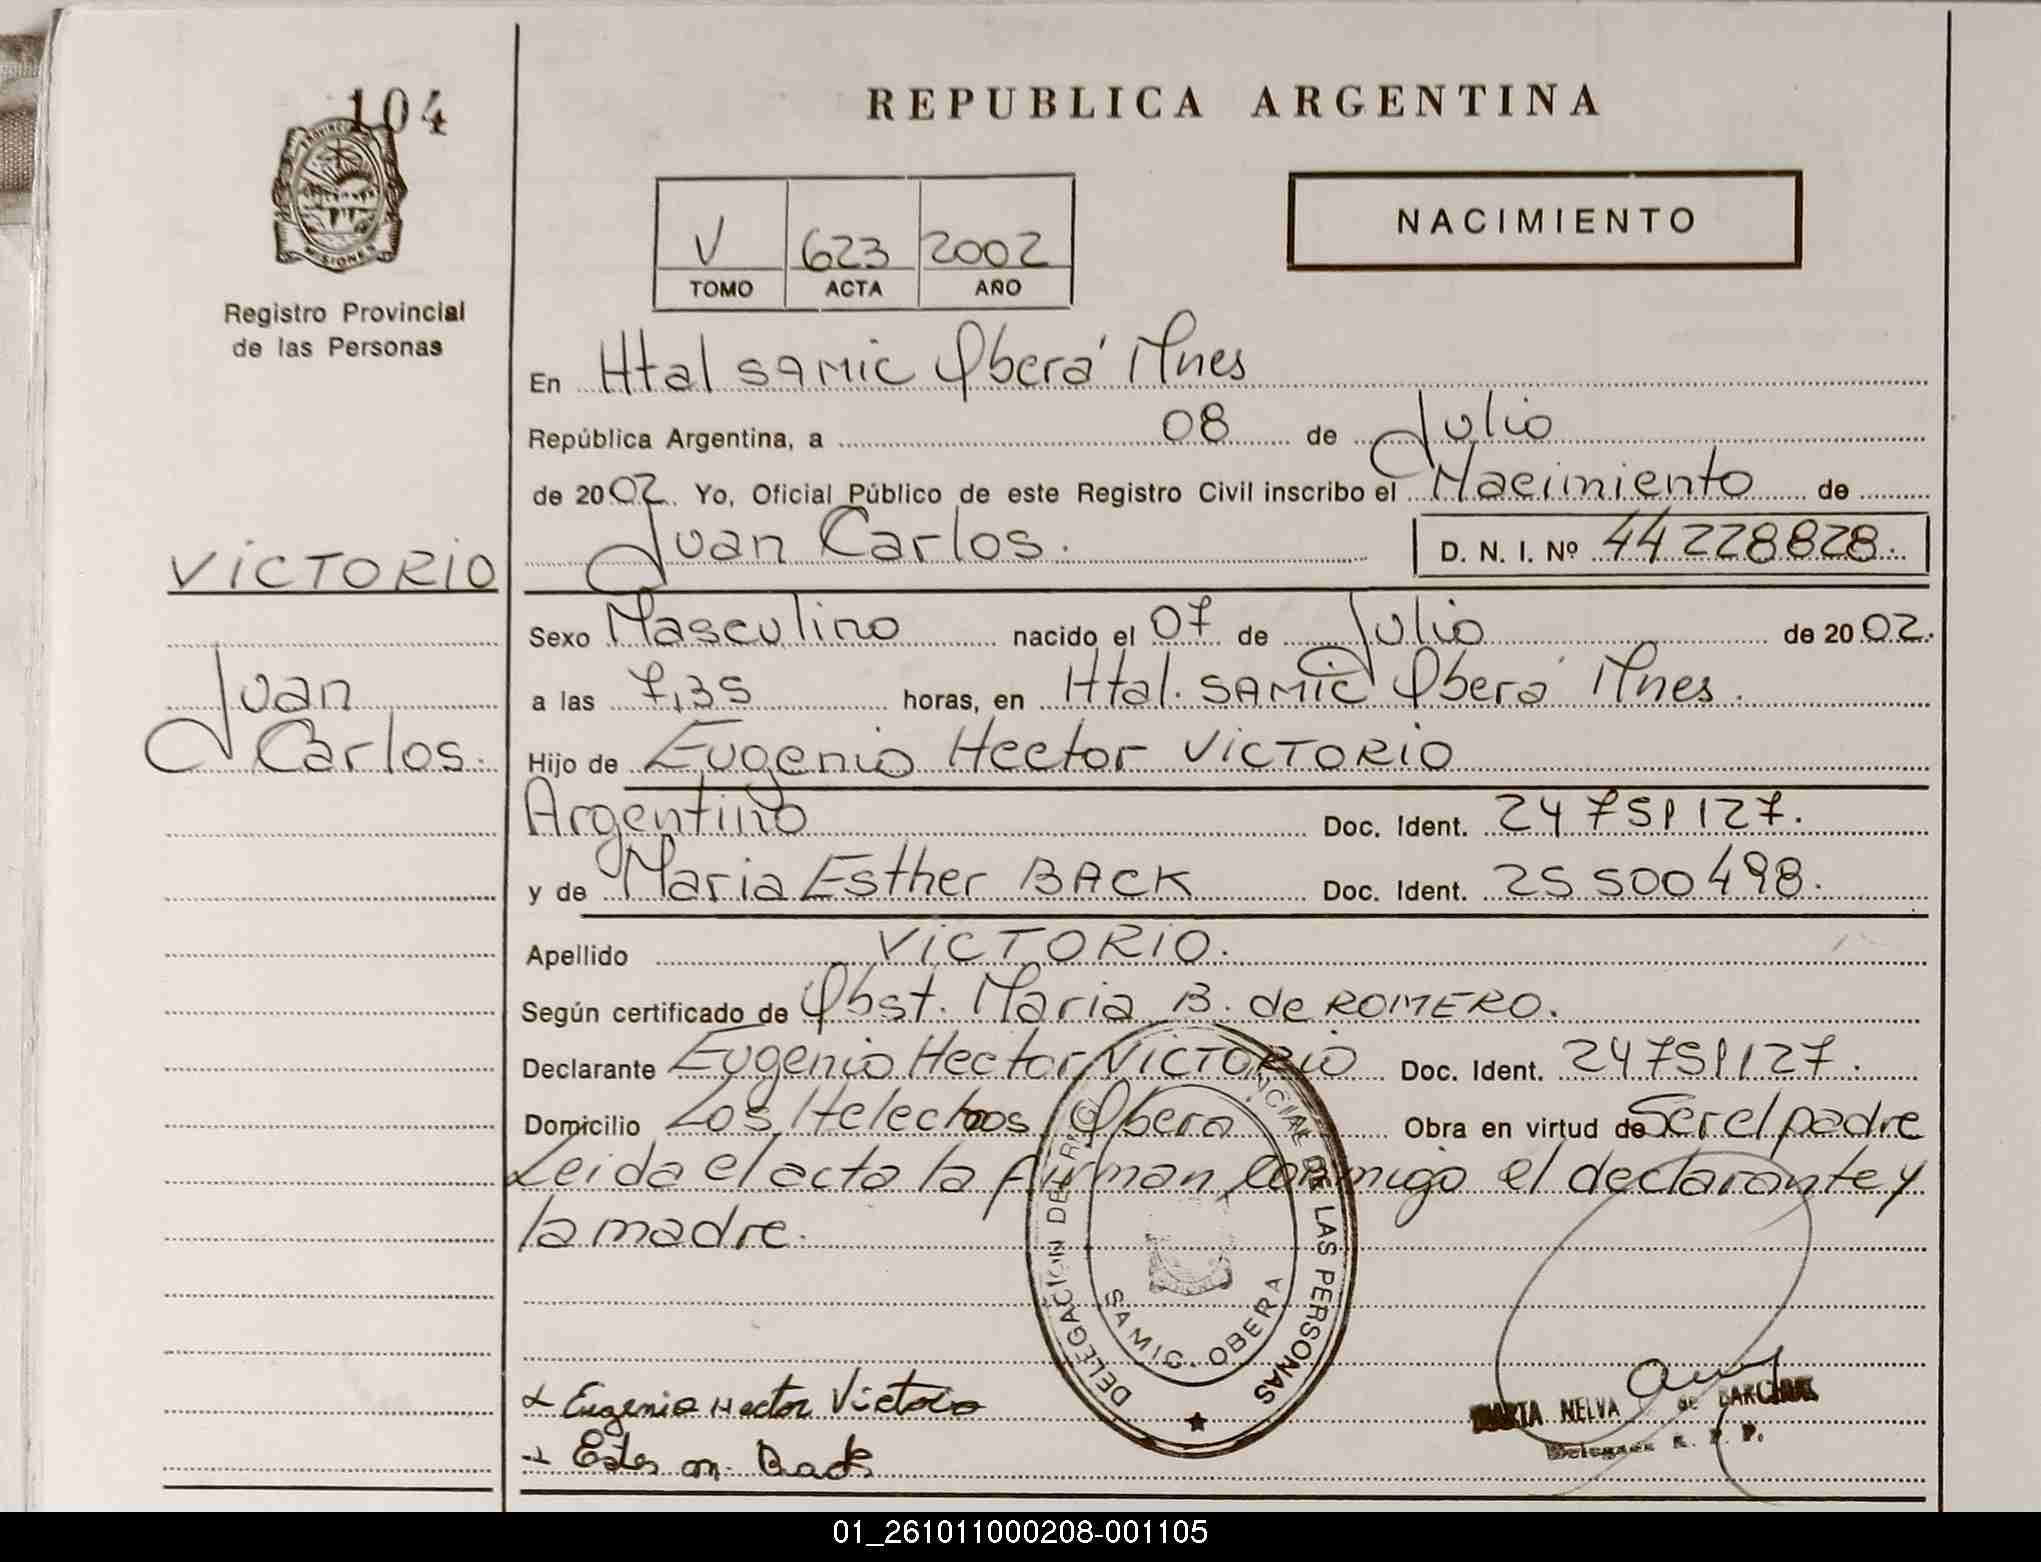 104
REPUBLICA ARGENTINA
NACIMIENTO
V 623 2002
TOMO ACTA AÑO
MISIONES
Registro Provincial
de las Personas
En Htal SAMIC Oberá Mnes
República Argentina, a 08 de Julio
de 2002. Yo, Oficial Público de este Registro Civil inscribo el Nacimiento de
Juan Carlos. D. N. I. Nº 44228828.
VICTORIO
Juan
Carlos.
Sexo Masculino nacido el 07 de Julio de 2002.
a las 7,35 horas, en Htal. SAMIC Oberá Mnes.
Hijo de Eugenio Hector VICTORIO
Argentino Doc. Ident. 24751127.
y de Maria Esther BACK Doc. Ident. 25500498.
Apellido VICTORIO.
Según certificado de Obst. Maria B. de ROMERO.
Declarante Eugenio Hector VICTORIO Doc. Ident. 24751127.
Domicilio Los Helechos Oberá Obra en virtud de Ser el padre
Leida el acta la firman conmigo el declarante y
la madre.
DELEGACION DEL DE LAS PERSONAS
SAMIC - OBERA
Eugenio Hector Victorio
Back
MARTA NELVA de
R. P. P.
01_261011000208-001105